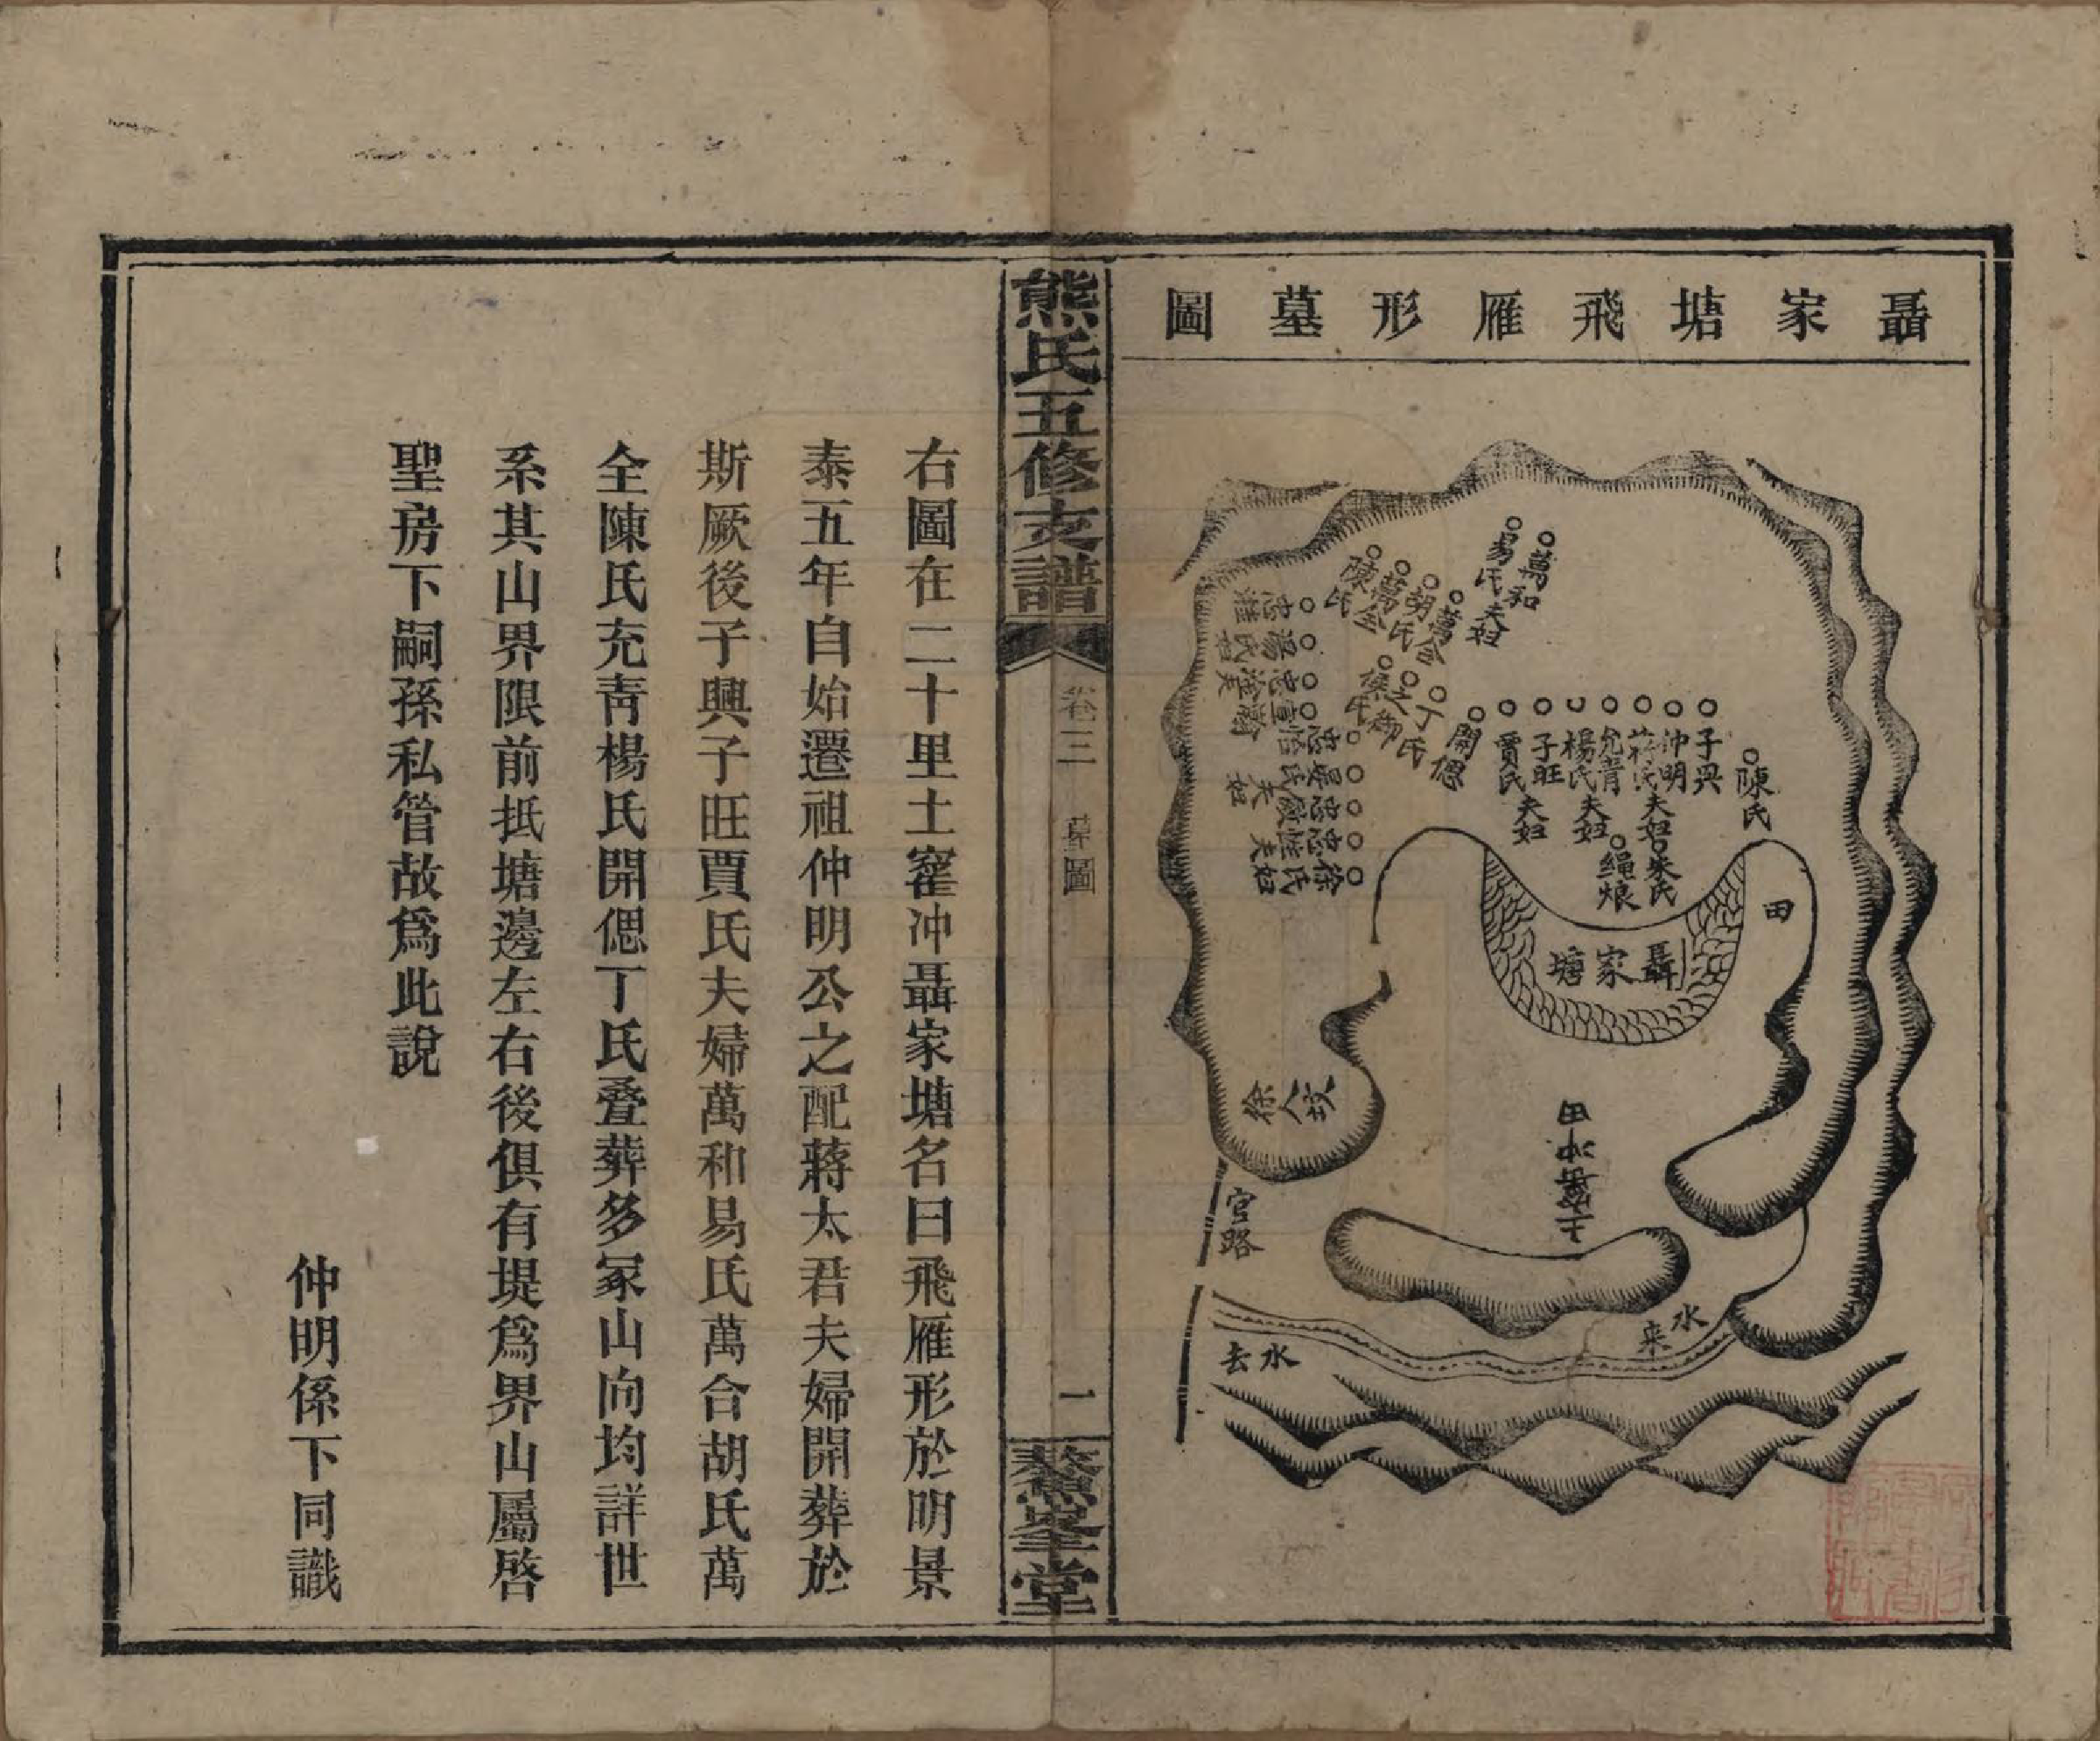 聶家塘飛雁形墓圖
萬和
易氏夫妇
萬合
胡氏
萬全
陳氏
丁氏
之御
開偲
陳氏
子興
仲明
蒋氏夫妇
允青
楊氏夫妇
子旺
賈氏夫妇
朱氏
绳烺
徐氏
田
聶家塘
徐人坟
官路
水来
水去
熊氏五修支譜
卷三
墓圖
一
右圖在二十里土窰冲聶家塘名曰飛雁形於明景
泰五年自始遷祖仲明公之配蔣太君夫婦開葬於
斯厥後子興子旺賈氏夫婦萬和易氏萬合胡氏萬
全陳氏充靑楊氏開偲丁氏叠葬多冢山向均詳世
系其山界限前抵塘邊左右後俱有堤爲界山屬啓
聖房下嗣孫私管故爲此說
仲明係下同識